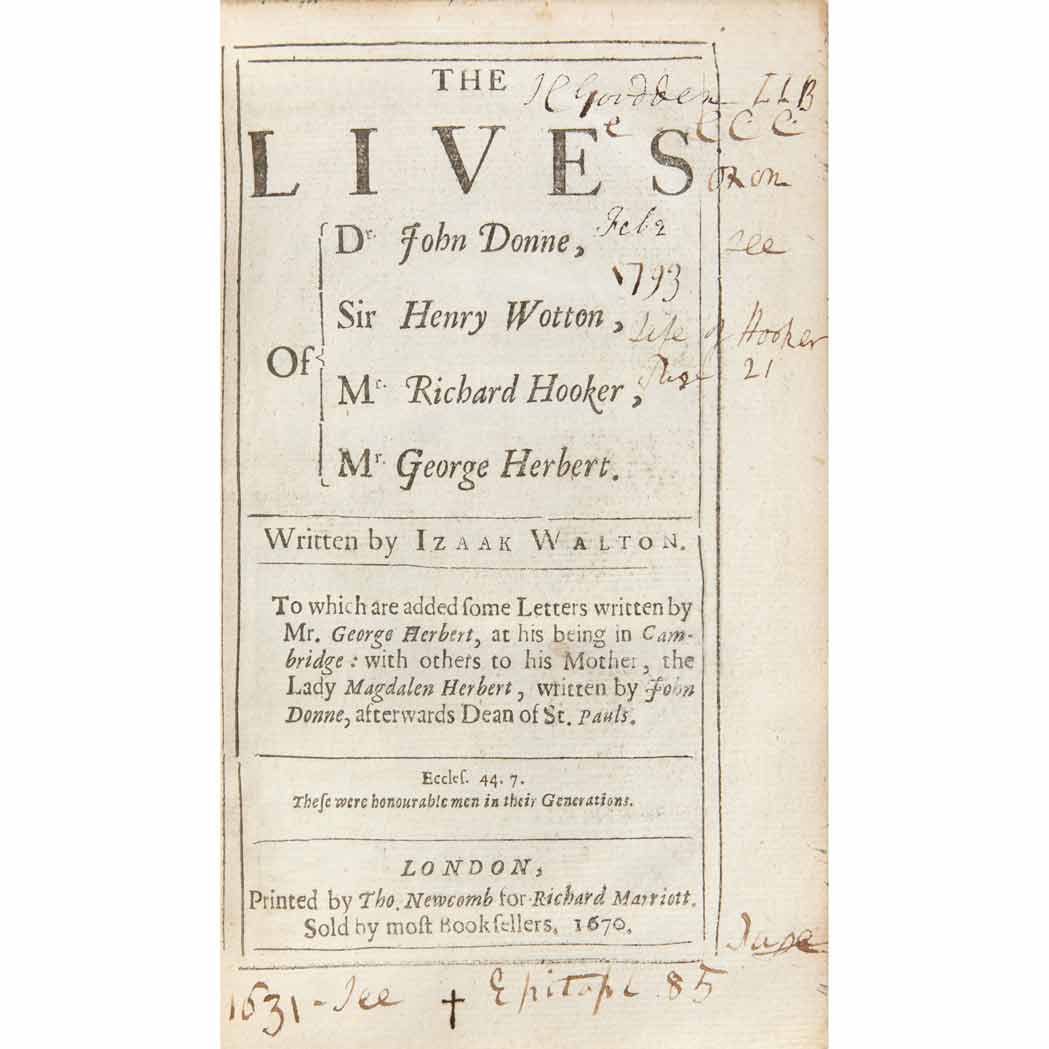 THE
LIVES
LLB
e CCC
oxon
Of
Dr. John Donne,
Feb 2
see
1793
Sir Henry Wotton,
Life of Hooker
Page 21
Mr. Richard Hooker,
Mr. George Herbert.
Written by IZAAK WALTON.
To which are added ſome Letters written by
Mr. George Herbert, at his being in Cam-
bridge: with others to his Mother, the
Lady Magdalen Herbert, written by John
Donne, afterwards Dean of St. Pauls.
Eccleſ. 44. 7.
Theſe were honourable men in their Generations.
LONDON,
Printed by Tho. Newcomb for Richard Marriott.
Sold by moſt Bookſellers. 1670.
1631 - See † Epitaph 85